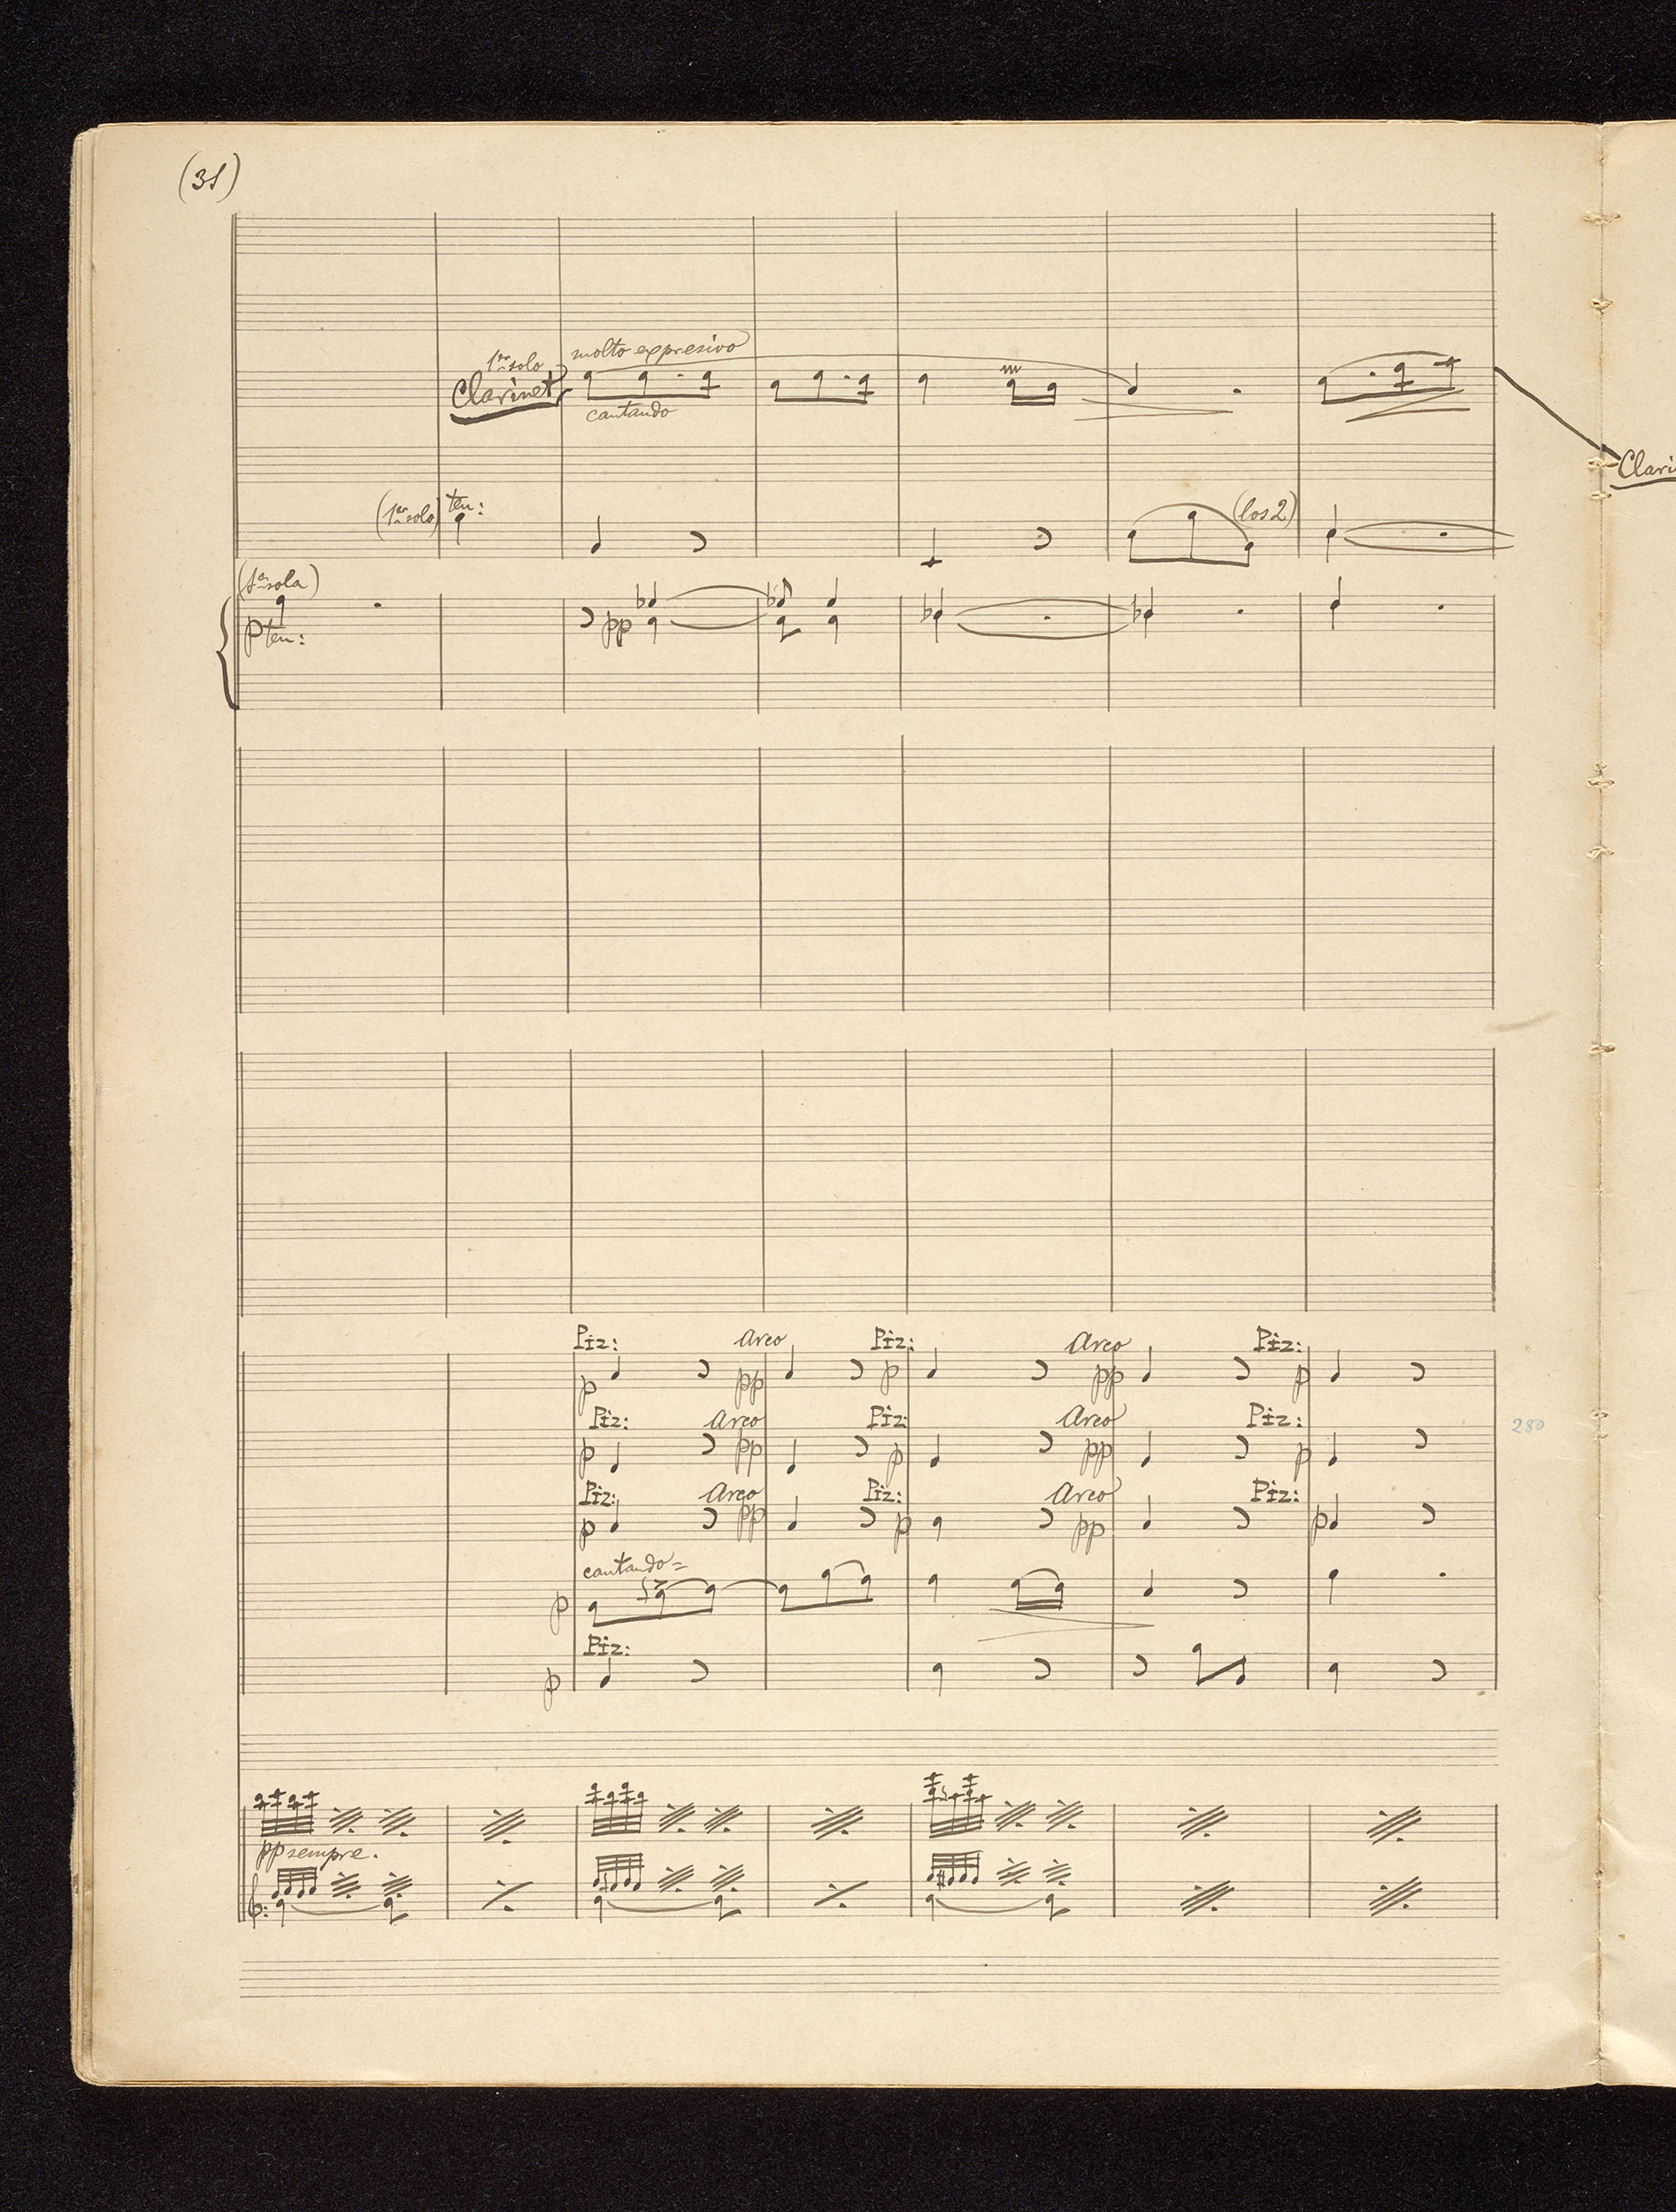 (31)
1er solo
molto expresivo
Clarinet
cantando
Clari
(1er solo)
ten:
(los 2)
(1a sola)
p ten:
pp
Piz: Arco Piz: Arco Piz:
p pp p pp p
Piz: Arco Piz: Arco Piz:
p pp p pp p
280
Piz: Arco Piz: Arco Piz:
p pp p pp p
cantando=
p
Piz:
p
pp sempre.